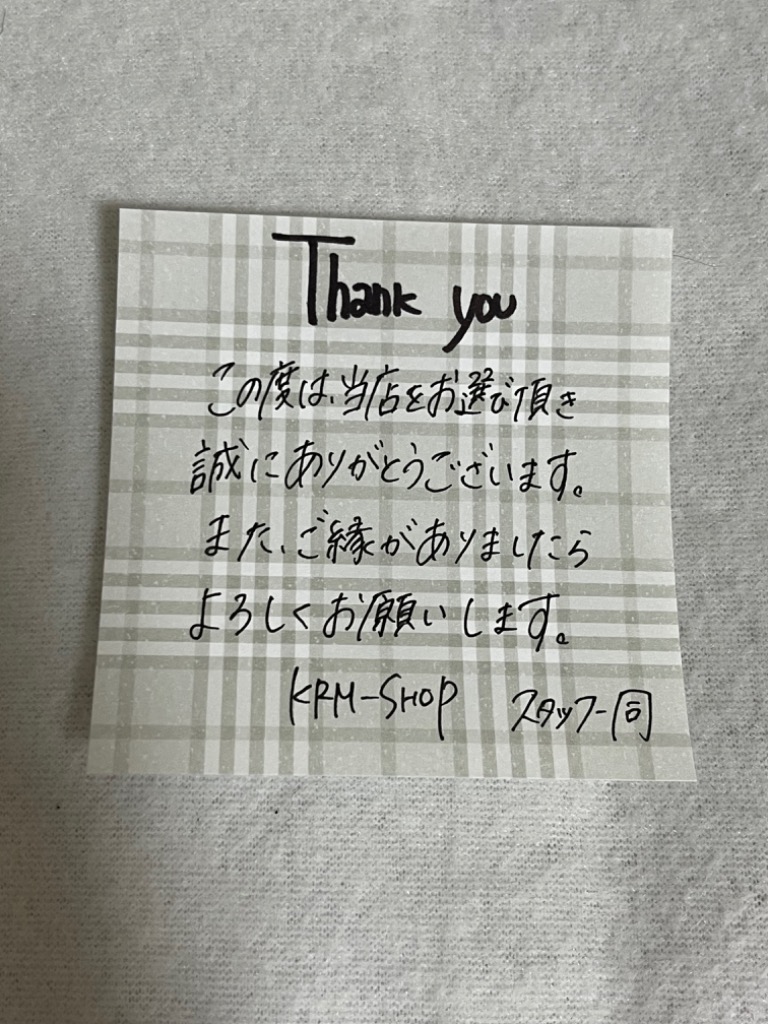 Thank you
この度は、当店をお選び頂き
誠にありがとうございます。
また、ご縁がありましたら
よろしくお願いします。
KRM-SHOP スタッフ一同